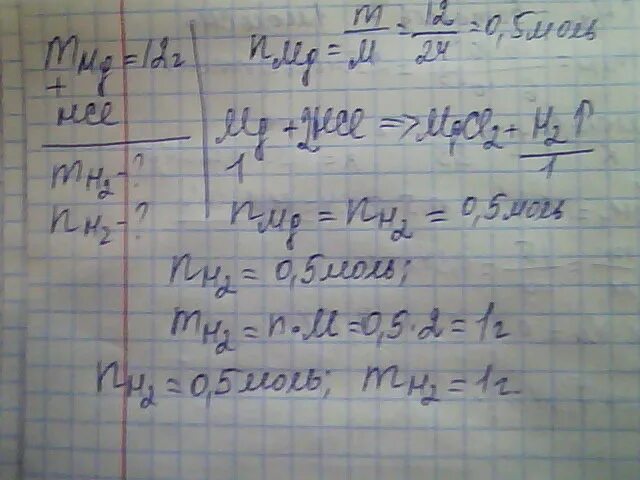 m Mg = 12г
+
HCl
m H₂ - ?
n H₂ - ?
n Mg = m/M = 12/24 = 0,5 моль
Mg + 2HCl => MgCl₂ + H₂↑
1 1
n Mg = n H₂ = 0,5 моль
n H₂ = 0,5 моль;
m H₂ = n · M = 0,5 · 2 = 1г
n H₂ = 0,5 моль; m H₂ = 1г